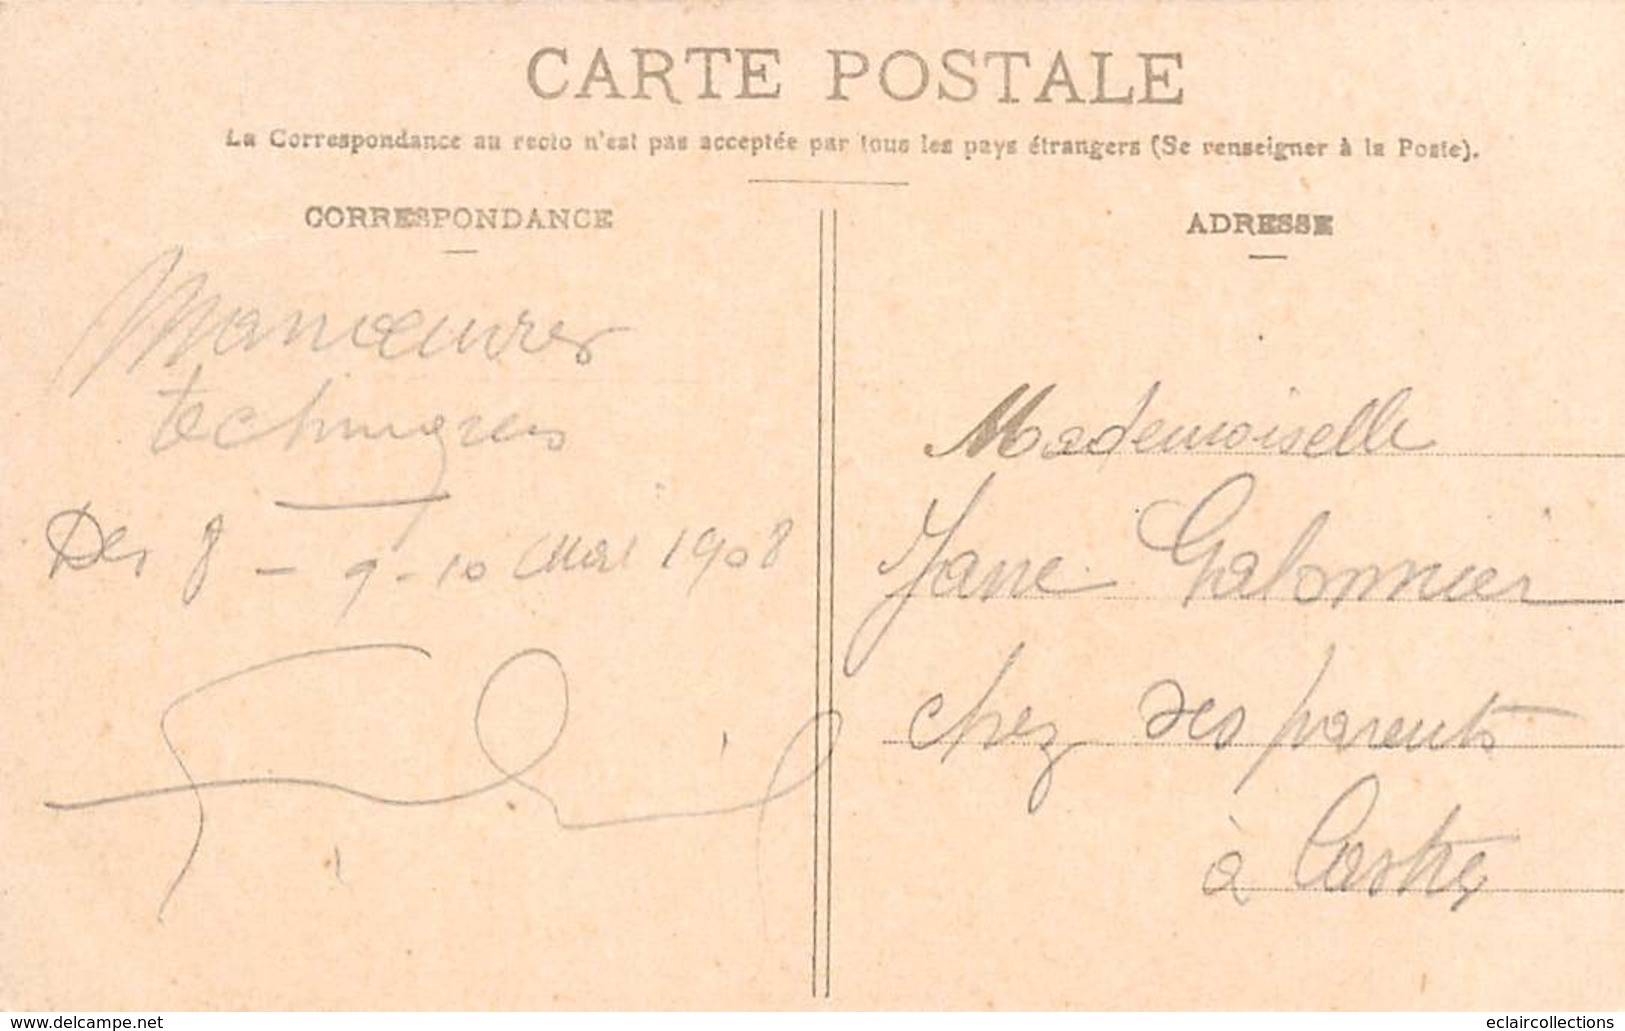 CARTE POSTALE
La Correspondance au recto n'est pas acceptée par tous les pays étrangers (Se renseigner à la Poste).
CORRESPONDANCE
ADRESSE
Manœuvres
techniques
Des 8 - 9 - 10 Mai 1908
Mademoiselle
Jane Galonnier
chez ses parents
à Castres
www.delcampe.net
eclaircollections